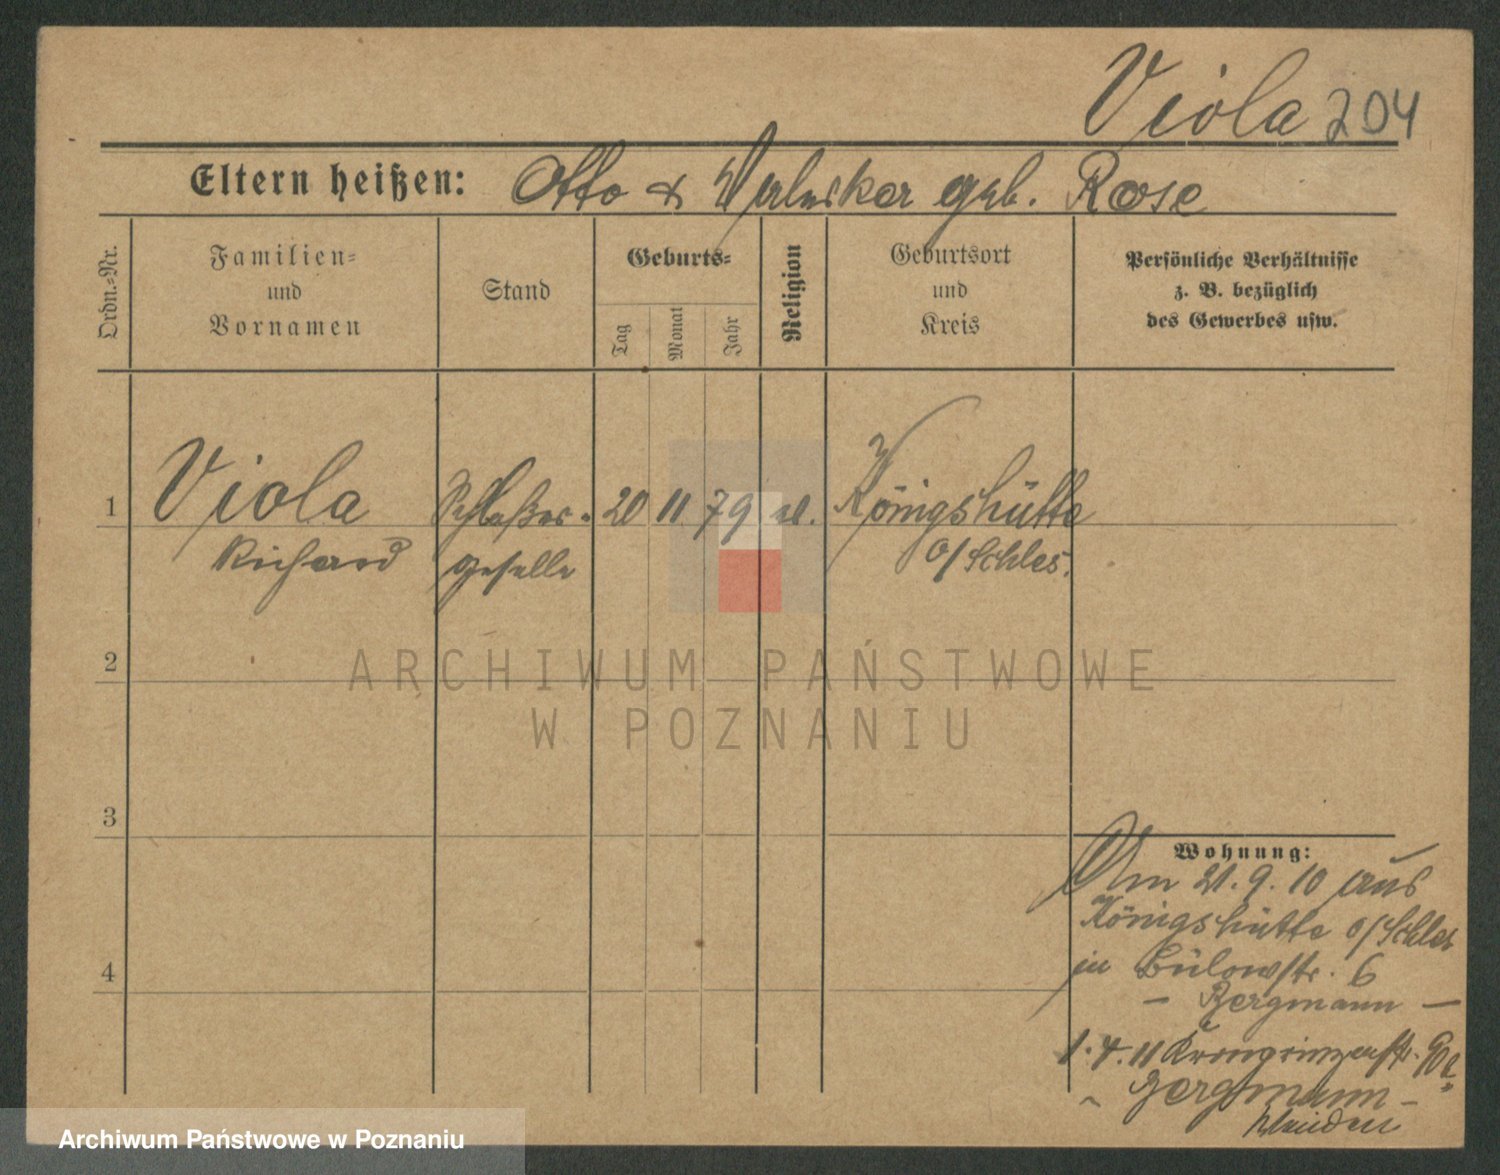 Viola 204
Eltern heißen: Otto & geb. Rose
Ordn.-Nr.
Familien-
und
Vornamen
Stand
Geburts-
Tag
Monat
Jahr
Religion
Geburtsort
und
Kreis
Persönliche Verhältnisse
z. B. bezüglich
des Gewerbes usw.
1 Viola 20 11 79 Königshütte
Richard geselle O/Schles.
2
3
4
Wohnung:
Am 21. 9. 10 aus
Königshütte O/Schles
in Bülowstr. 6
– Bergmann –
1. 4. 11 Kronprinzenstr.
– Bergmann –
ARCHIWUM PAŃSTWOWE
W POZNANIU
Archiwum Państwowe w Poznaniu